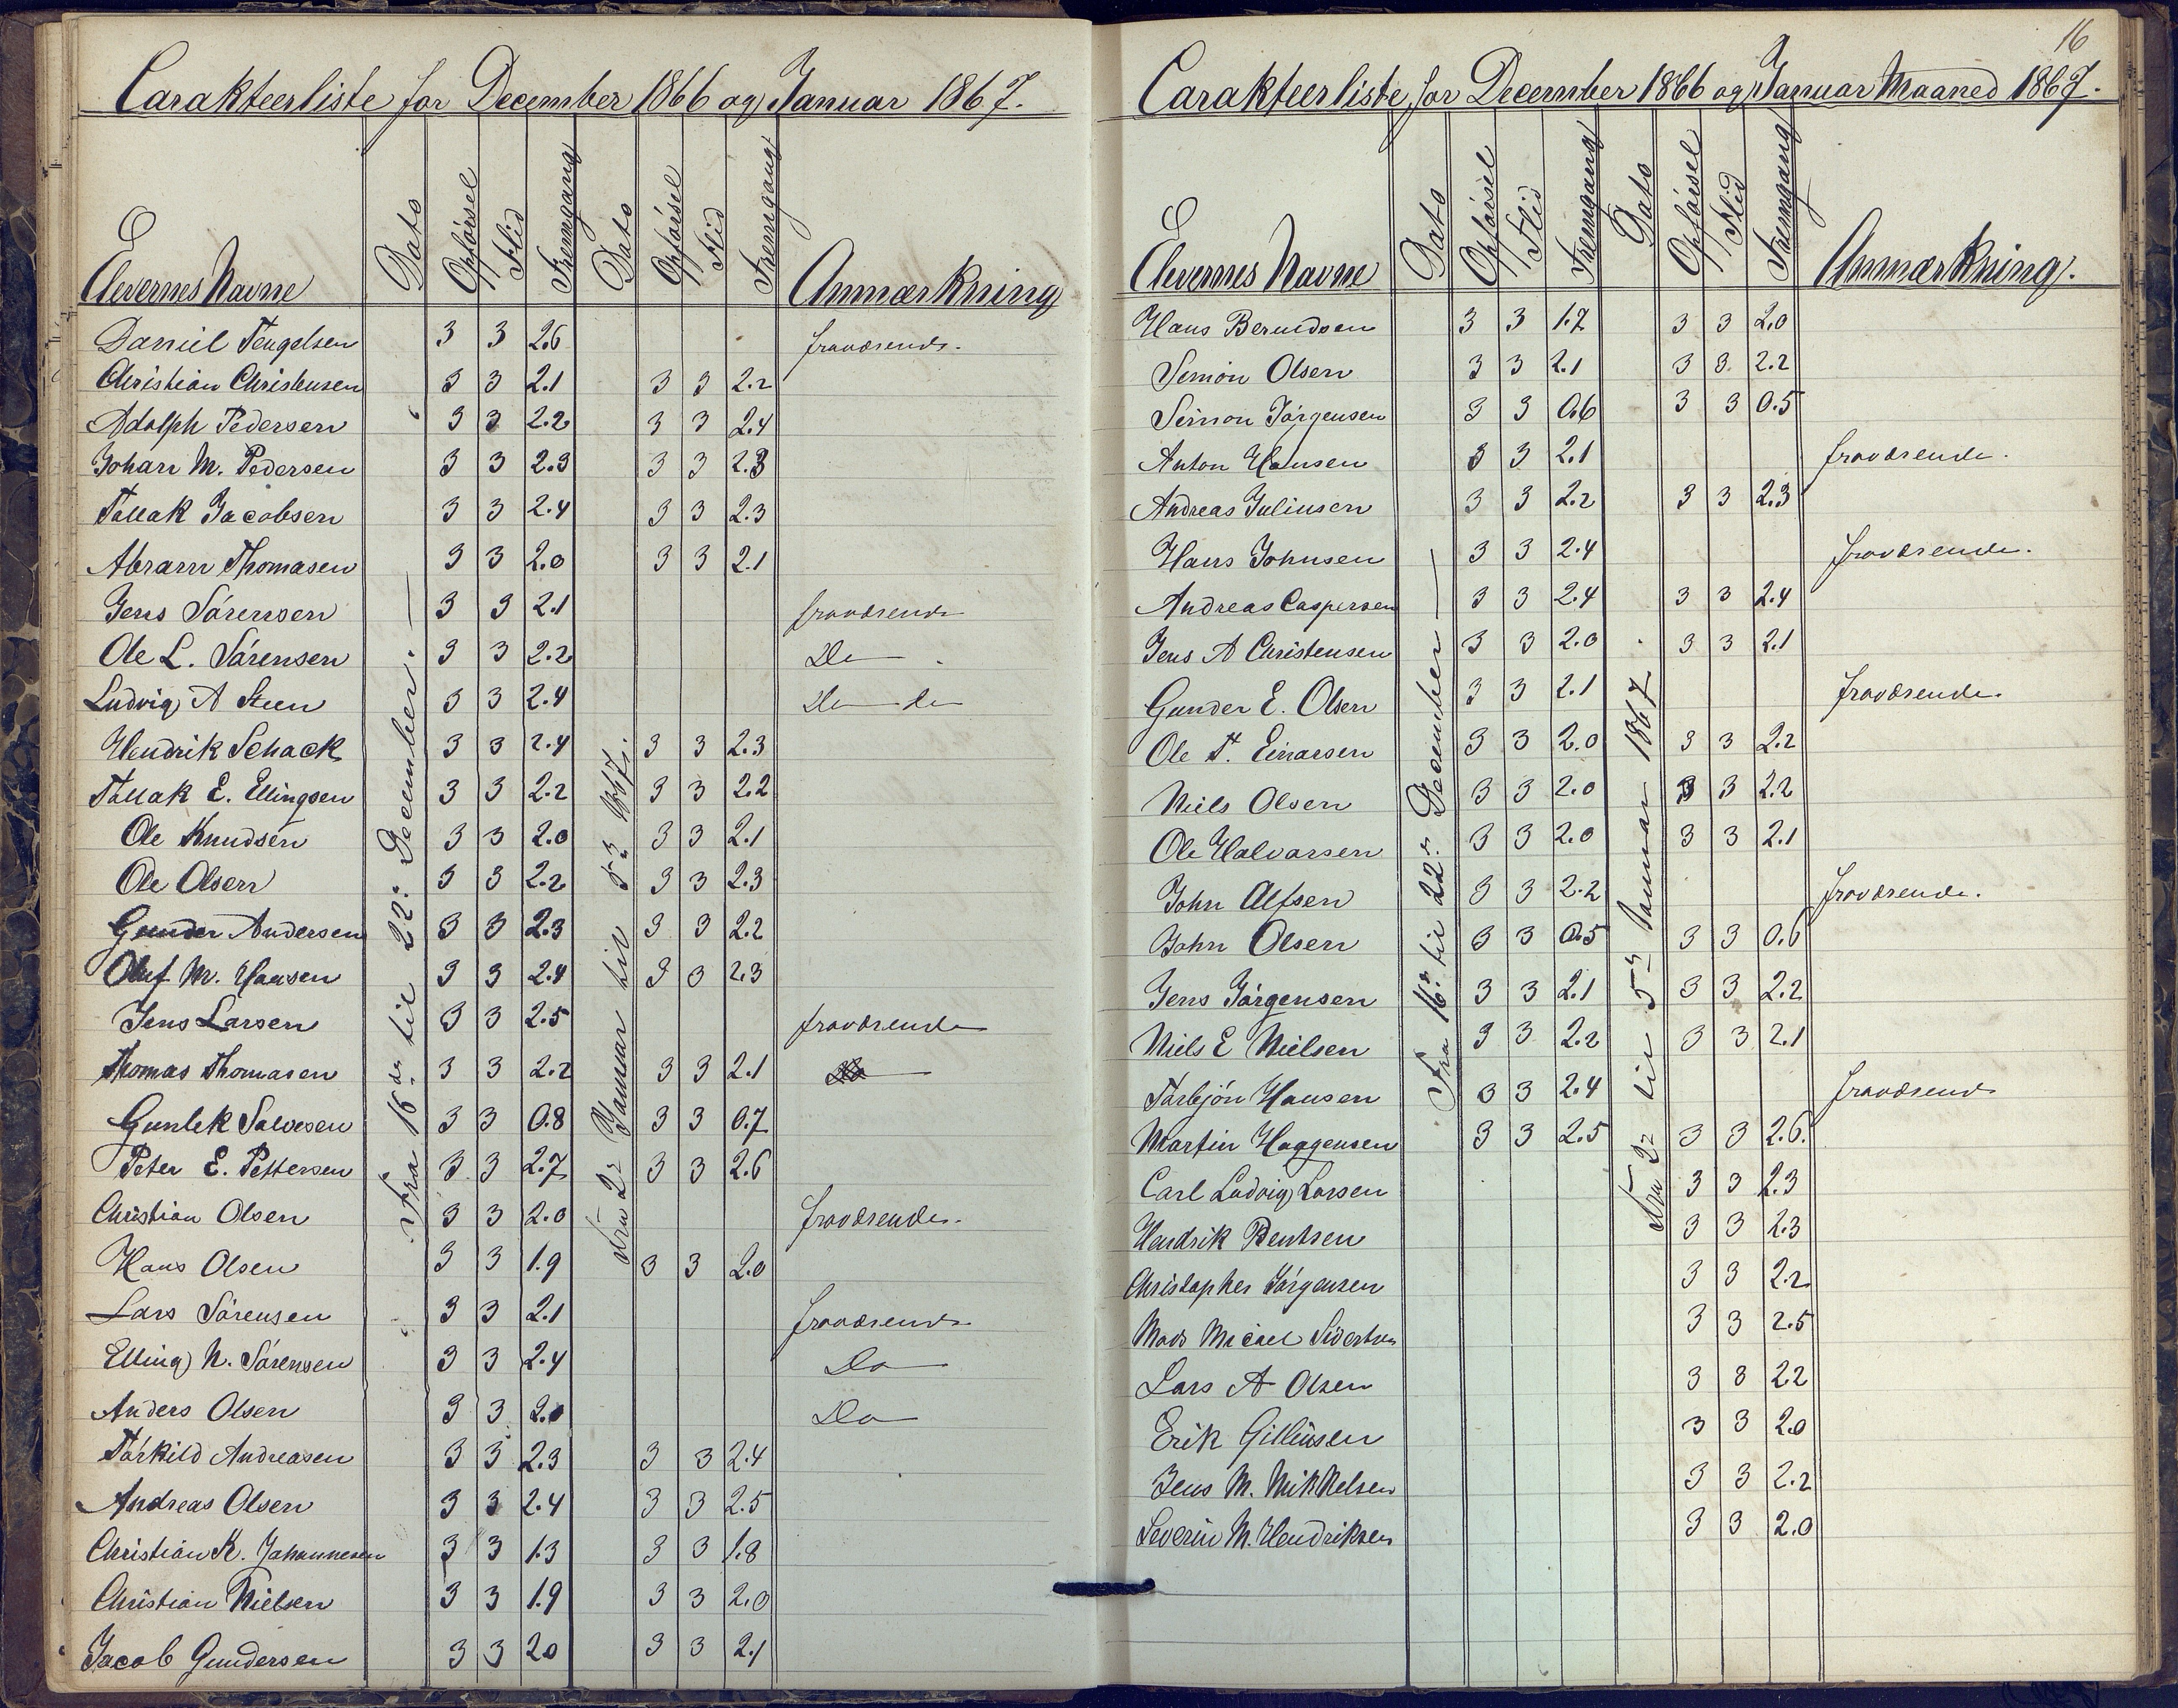 Carakteerliste for December 1866 og Januar 1867.
Elevernes Navne Dato Opførsel Flid Fremgang Dato Opførsel Flid Fremgang Anmærkning
Fra 16de til 22. December.
Fra 2 Januar til 5 1867.
Daniel Tengelsen 3 3 2.6 fraværende.
Christian Christensen 3 3 2.1 3 3 2.2
Adolph Pedersen 3 3 2.2 3 3 2.4
Johan M. Pedersen 3 3 2.3 3 3 2.3
Tallak Jacobsen 3 3 2.4 3 3 2.3
Abram Thomasen 3 3 2.0 3 3 2.1
Jens Sørensen 3 3 2.1 fraværende
Ole L. Sørensen 3 3 2.2 Do
Ludvig A Steen 3 3 2.4 Do do
Hendrik Schack 3 3 2.4 3 3 2.3
Tallak E. Ellingsen 3 3 2.2 3 3 2.2
Ole Knudsen 3 3 2.0 3 3 2.1
Ole Olsen 3 3 2.2 3 3 2.3
Gunder Andersen 3 3 2.3 3 3 2.2
Oluf M. Hansen 3 3 2.4 3 3 2.3
Jens Larsen 3 3 2.5 fraværende
Thomas Thomasen 3 3 2.2 3 3 2.1
Gunlek Salvesen 3 3 0.8 3 3 0.7
Peter E. Pettersen 3 3 2.7 3 3 2.6
Christian Olsen 3 3 2.0 fraværende.
Hans Olsen 3 3 1.9 3 3 2.0
Lars Sørensen 3 3 2.1 fraværende
Elling N. Sørensen 3 3 2.4 Do
Anders Olsen 3 3 2.0 Do
Tørkild Andreasen 3 3 2.3 3 3 2.4
Andreas Olsen 3 3 2.4 3 3 2.5
Christian K. Johannesen 3 3 1.3 3 3 1.8
Christian Nielsen 3 3 1.9 3 3 2.0
Jacob Gundersen 3 3 20 3 3 2.1
16
Carakteerliste for December 1866 og Januar Maaned 1867.
Elevernes Navne Dato Opførsel Flid Fremgang Dato Opførsel Flid Fremgang Anmærkning.
Fra 16. til 22. December
Fra 2 til 5 Januar 1867
Hans Berndsen 3 3 1.7 3 3 2.0
Simon Olsen 3 3 2.1 3 3. 2.2
Simon Jørgensen 3 3 0.6 3 3 0.5
Anton Hansen 3 3 2.1 fraværende.
Andreas Juliusen 3 3 2.2 3 3 2.3
Hans Johnsen 3 3 2.4 fraværende.
Andreas Caspersen 3 3 2.4 3 3 2.4
Jens A Christensen 3 3 2.0 3 3 2.1
Gunder E. Olsen 3 3 2.1 fraværende.
Ole T. Einarsen 3 3 2.0 3 3 2.2
Niels Olsen 3 3 2.0 3 3 2.2
Ole Halvorsen 3 3 2.0 3 3 2.1
John Alfsen 3 3 2.2 fraværende.
John Olsen 3 3 0.5 3 3 0.6
Jens Jørgensen 3 3 2.1 3 3 2.2
Niels E Nielsen 3 3 2.2 3 3 2.1
Tarbjøn Hansen 3 3 2.4 fraværende
Martin Haagensen 3 3 2.5 3 3 2.6.
Carl Ludvig Larsen 3 3 2.3
Hendrik Bentsen 3 3 2.3
Christopher Jørgensen 3 3 2.2
Mads Micael Sivertsen 3 3 2.5
Lars A Olsen 3 3 2.2
Erik 3 3 2.0
Jens M. Mikkelsen 3 3 2.2
Severin M. Hendriksen 3 3 2.0